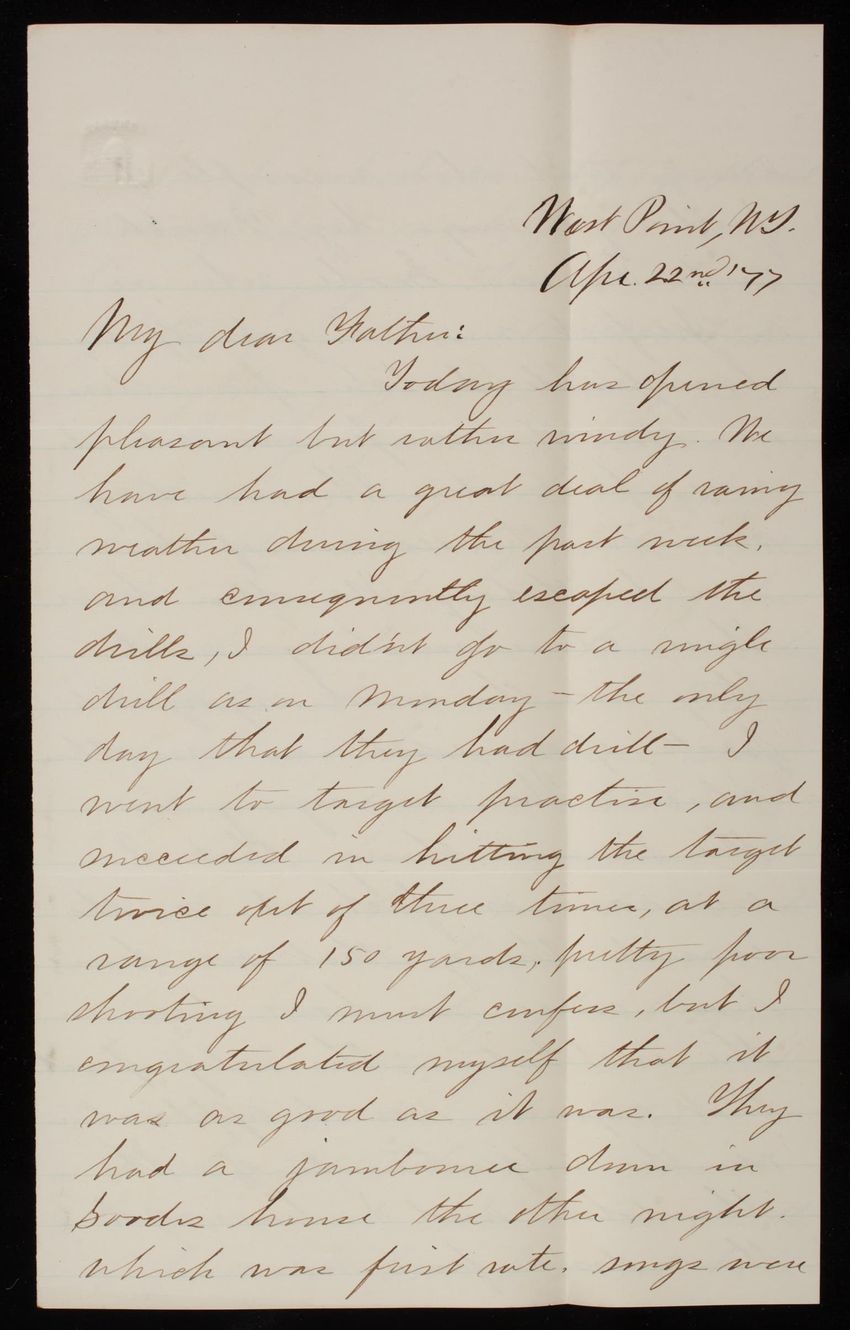 West Point, N.Y.
Apr. 22nd '77
My dear Father:
Today has opened
pleasant but rather windy. We
have had a great deal of rainy
weather during the past week,
and consequently escaped the
drills, I did'nt go to a single
drill as on Monday – the only
day that they had drill – I
went to target practise, and
succeeded in hitting the target
twice out of three times, at a
range of 150 yards, pretty poor
shooting I must confess, but I
congratulated myself that it
was as good as it was. They
had a jamboree down in
house the other night.
which was first rate. songs were